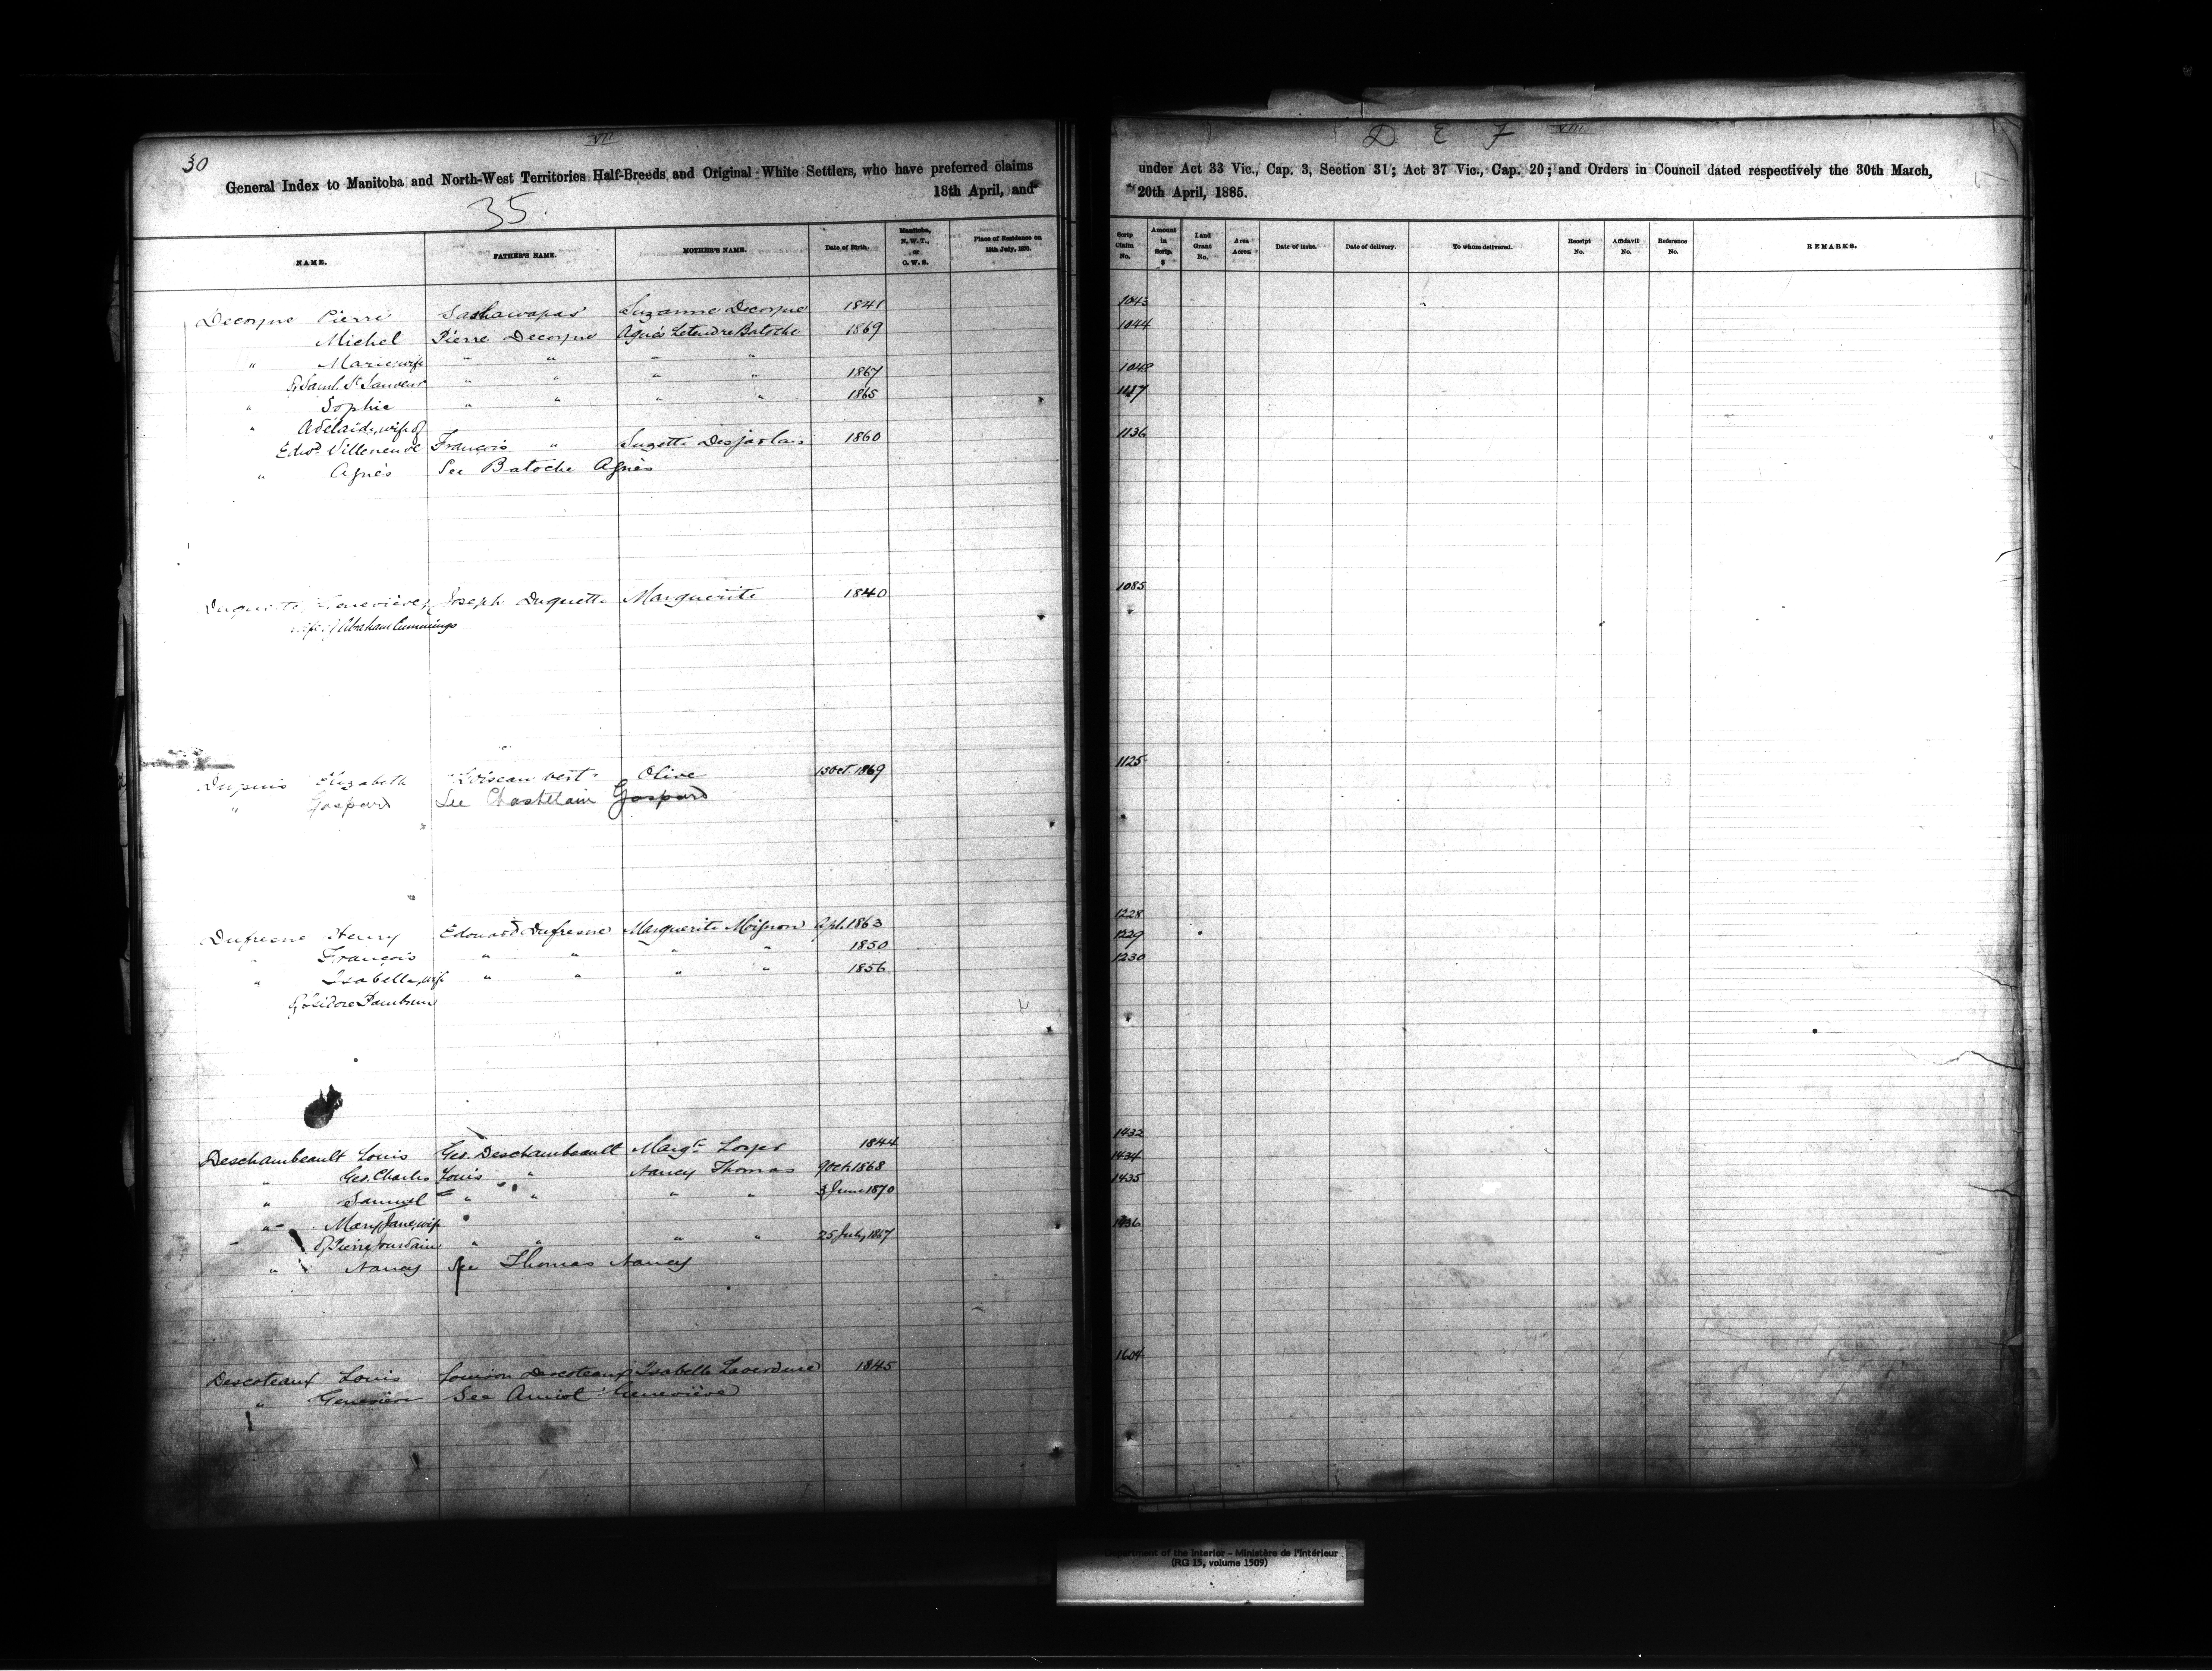 30
VII
General Index to Manitoba and North-West Territories Half-Breeds and Original White Settlers, who have preferred claims
18th April, and
35.
NAME. FATHER'S NAME. MOTHER'S NAME. Date of Birth. Manitoba, N.W.T., or O.W.S. Place of Residence on 15th July, 1870.
Decorne Pierre Sashawapas Suzanne Decorne 1841
Michel Pierre Decorne Agnés Letendre Batoche 1869
" Marie, wife " " " "
of Saml. St " " " " 1867
" Sophie " " " " 1865
" Adelaide, wife of
Edwd. Villeneuve François " Suzette Desjarlais 1860
" Agnés See Batoche Agnés
Duquette, Geneviève, Joseph Duquette Marguerite 1840
wife of Abraham Cummings
Dupuis Elizabeth "L'oiseau vert" Olive 15 Oct. 1869
" Gaspard See Chastelain Gaspard
Dufresne Henry Edouard Dufresne Marguerite Mignon Apl. 1863
" François " " " " 1850
" Isabella, wife " " " " 1856
of Isidore Pambrun
Deschambeault Louis Geo. Deschambeault Margt. 1844
" Geo. Charles Louis " Nancy Thomas 9 Oct. 1868
" Samuel " " " " 3 June 1870
" Mary Jane, wife
of Pierre Jourdain " " " " 25 July, 1867
" Nancy See Thomas Nancy
Descoteaux Louis Louison Descoteaux Isabelle Laverdure 1845
" Geneviève See Amiot Geneviève
D E F VIII
under Act 33 Vic., Cap. 3, Section 31; Act 37 Vic., Cap. 20; and Orders in Council dated respectively the 30th March,
20th April, 1885.
Scrip Claim No. Amount in Scrip. $ Land Grant No. Area Acres. Date of Issue. Date of delivery. To whom delivered. Receipt No. Affidavit No. Reference No. REMARKS.
1043
1044
1048
1136
1085
1125
1228
1229
1230
1432
1434
1435
1436
1604
Department of the Interior - Ministère de l'Intérieur
(RG 15, volume 1509)